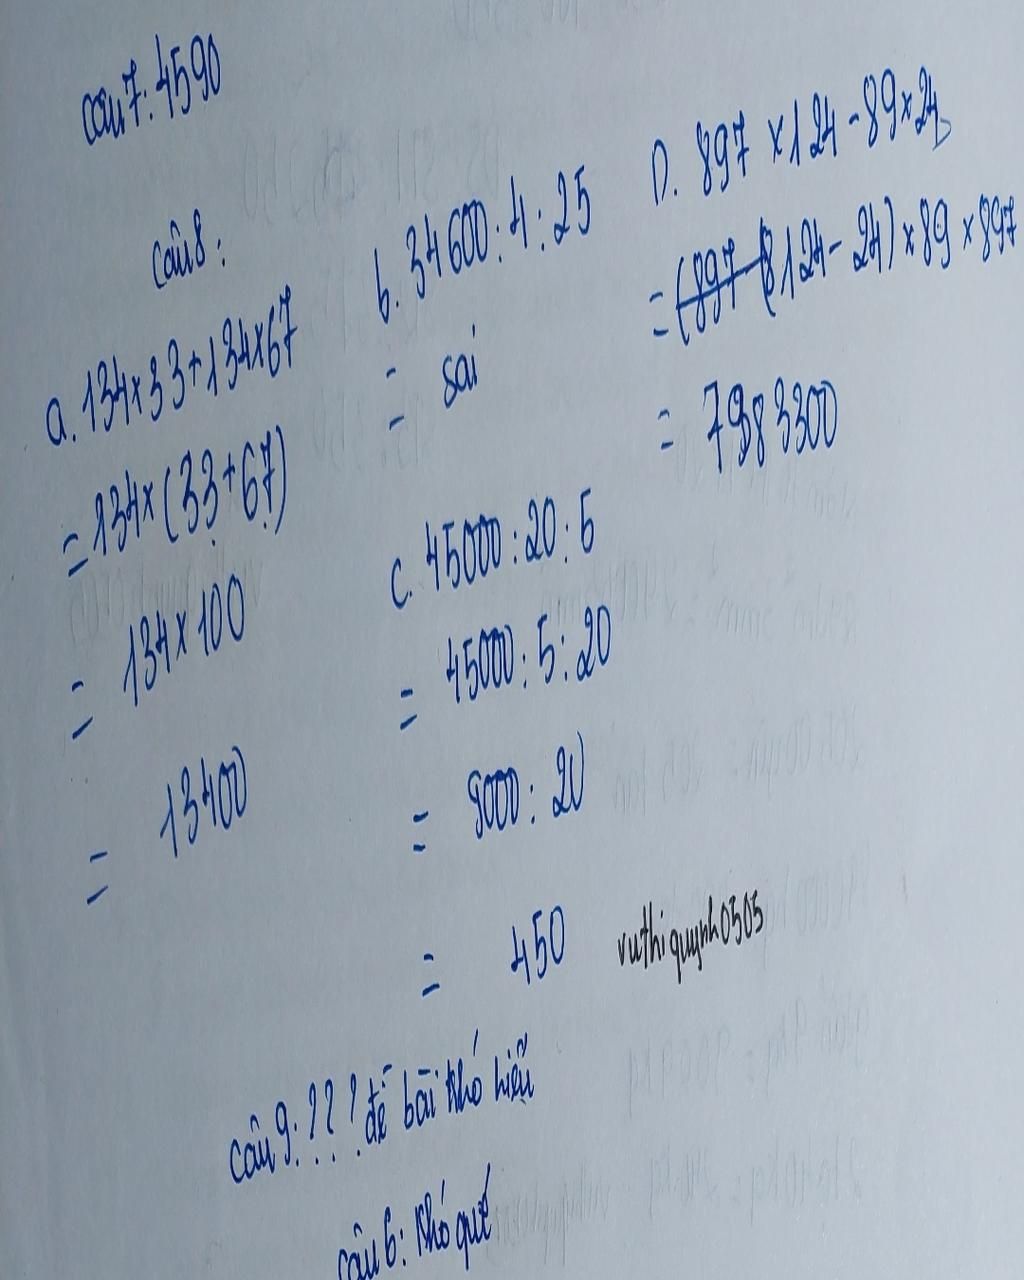 câu 7: 4590
câu 8:
a. 134×33+134×67
=134×(33+67)
= 134×100
= 13400
b. 34600:4:25
= sai
c. 45000:20:5
= 45000:5:20
= 9000:20
= 450
D. 897 ×124-89×24
= (124-24)×89×897
= 7983300
vuthiquynh0505
câu 9: ??? đề bài khó hiểu
câu 6: khó quá